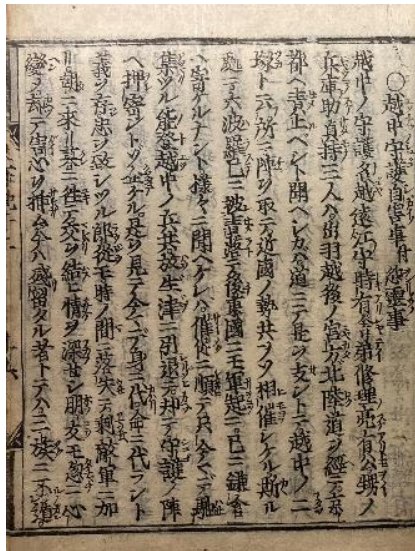 〇越中守護自害事付怨靈事
越中ノ守護名越遠江守時有舎弟修理亮有公甥ノ
兵庫助貞持三人ハ出羽越後ノ宮方北陸道ヲ經テ京
都ヘ責上ベシト聞ヘシカバ道ニテ是ヲ支ントテ越中ノ二
塚ト云所ニ陣ヲ取テ近國ノ勢共ヲゾ相催シケル斯ル
処ニ六波羅已ニ被責落テ後東國ニモ軍起テ已ニ鎌倉
ヘ寄ケルナンド様々ニ聞ヘケレバ催促ニ順テ只今マデ馳
集ツル能登越中ノ兵共放生津ニ引退テ却テ守護ノ陣
ヘ押寄ントゾ企ケル是ヲ見テ今マデ身ニ代命ニ代ラント
義ヲ存忠ヲ致シツル郎従モ時ノ間ニ落失テ剰敵軍ニ加
リ朝ニ來リ暮ニ往テ交ヲ結ビ情ヲ深セシ朋友モ忽ニ心
變ジ却テ害心ヲ挿ム今ハ残留タル者トテハ三族ニ不遁